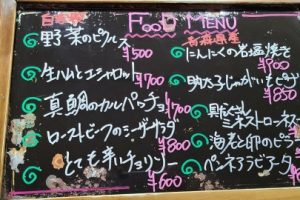 FOOD MENU
自家製
野菜のピクルス
¥500
生ハムとエシャロット
¥700
真鯛のカルパッチョ
¥700
ローストビーフのシーザーサラダ
¥800
とても辛いチョリソー
¥600
青森県産
にんにくの岩塩焼き
¥700
明太子じゃがいもピザ
¥850
具だくさんミネストローネ
海老と卵のピラ
ペンネアラビアータ